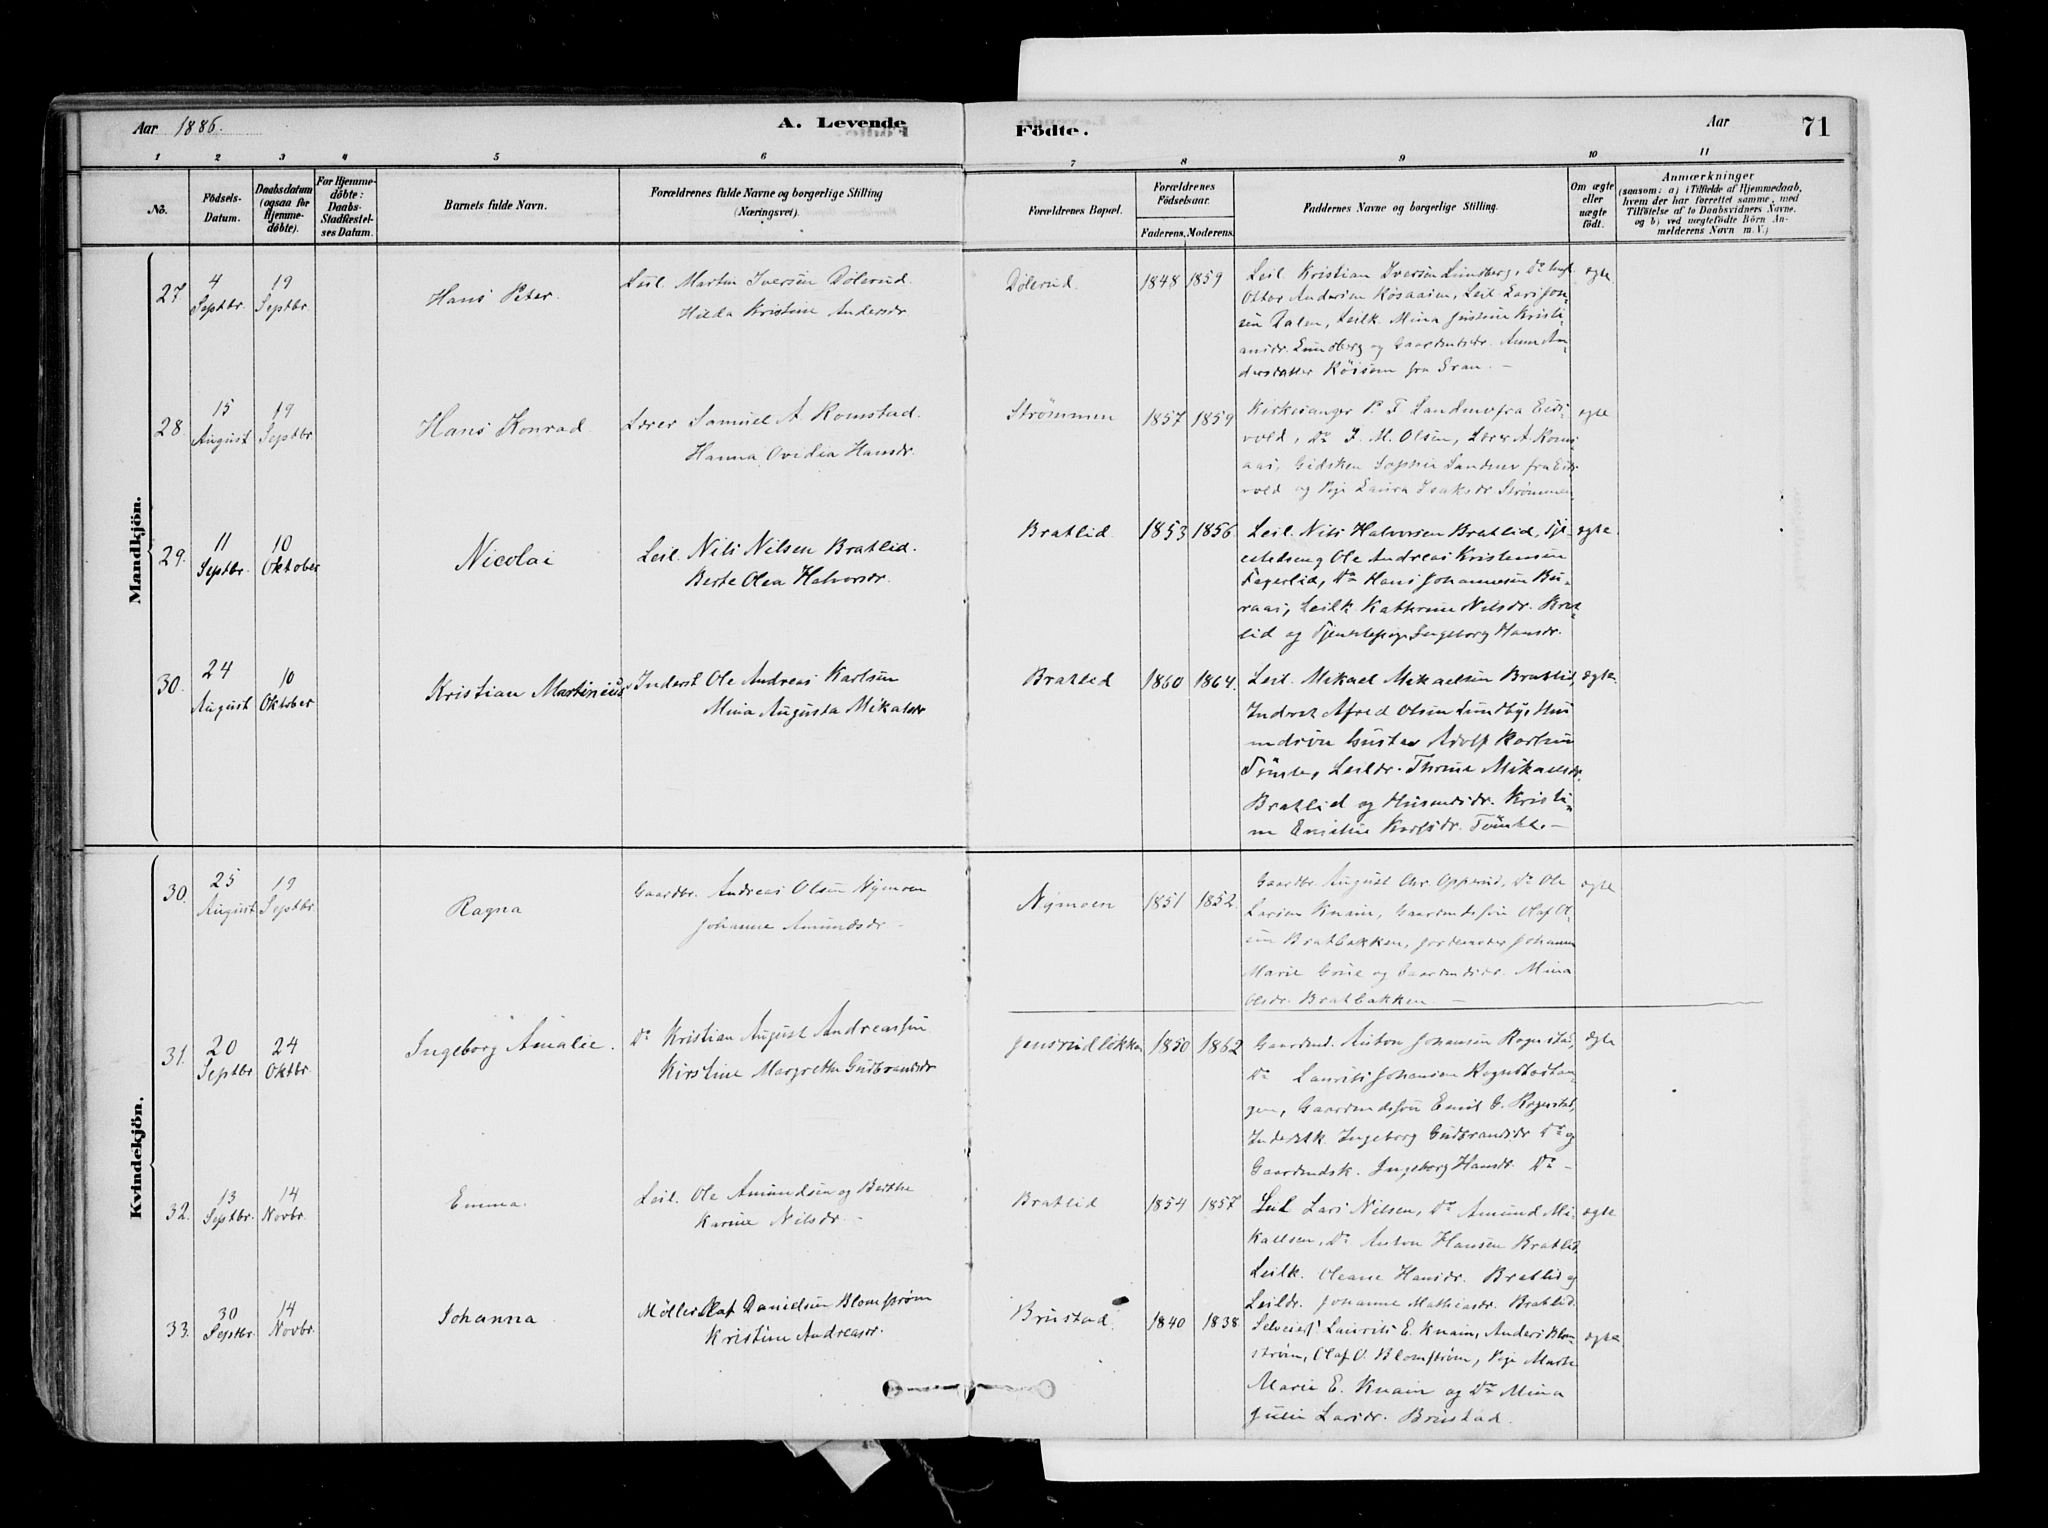 Aar 1886.
A. Levende
Födte.
Aar
71
1 2 3 4 5 6 7 8 9 10 11
No.
Födsels-
Datum.
Daabsdatum
(ogsaa for
Hjemme-
döbte).
For Hjemme-
döbte:
Daabs-
Stadfæstel-
ses Datum.
Barnets fulde Navn.
Forældrenes fulde Navne og borgerlige Stilling
(Næringsvei).
Forældrenes Bopæl.
Forældrenes
Födselsaar.
Faderens. Moderens.
Faddernes Navne og borgerlige Stilling.
Om ægte
eller
uægte
født.
Anmærkninger
(saasom: a) i Tilfælde af Hjemmedaab,
hvem der har forrettet samme, med
Tilföielse af to Daabsvidners Navne.
og b) ved uægtefödte Börn An-
melderens Navn m. V.)
Mandkjön.
27 4 Septbr. 19 Septbr. Hans Peter.
Leil Martin Iversen Dölerud.
Hilda Kristine Andersdr
Dölerud. 1848 1859
Leil. Kristian Iversen Lundberg, Do
Ottar Andersen Rösaaien, Leil. Lars Jon-
sen Dalen, Leilk. Mina Justine Kristi-
ansdr. Lundberg og Gaardmdsdr. Anne An-
dersdatter Röisen fra Gran. —
ægte
28 15 August 19 Septbr. Hans Konrad
Lærer Samuel A. Romstad.
Hanna Ovidia Hansdr.
Strömmen 1857 1859
Kirkesanger P. T. Sandnes fra Eids-
vold, Do J. M. Olsen, Lærer A. Roms-
aas, Gidsken Sophie Sandnes fra Eids-
vold og Pige Laura Isaksdr. Strømmen
ægte
29. 11 Septbr. 10 Oktober Nicolai
Leil. Nils Nilsen Bratlid.
Berte Olea Halvorsdr.
Bratlid 1853 1856.
Leil. Nils Halvorsen Bratlid,
Ole Andreas Kristensen
Fagerlid, Do Hans Johannesen Bu-
raas, Leilk Kathrine Nilsdr. Brat-
lid og Tjenestepige Ingeborg Hansdr.
ægte.
30. 24 August 10 Oktober Kristian Martinius
Inderst Ole Andreas Karlsen
Mina Augusta Mikalsdr
Bratlid 1860 1864.
Leil. Mikael Mikaelsen Bratlid,
Inderst Alfred Olsen Lundby, Hus-
mdsön Gustav Adolf Karlsen
Tömte, Leildr. Thrine Mikaelsdr.
Bratlid og Husmdsdr. Kristi-
ne Emilie Karlsdr. Tömte. —
ægte.
Kvindekjön.
30. 25 August 19 Septbr. Ragna
Gaardbr. Andreas Olsen Nymoen
Johanne Amundsdr —
Nymoen 1851 1852.
Gaardbr. August Chr. Opperud, Do Ole
Larsen Knain, Gaardmdssön Olaf Ol-
sen Bratbakken, Jordemoder Johanne
Marie Grue og Gaardmdsdr. Mina
Olsdr. Bratbakken. —
ægte
31. 20 Septbr. 24 Oktbr. Ingeborg Amalie.
Do Kristian August Andreassen.
Kirstine Margrethe Gudbrandsdr
Jensrudlökken 1850 1862
Gaardmd. Anton Johansen Rognstad,
Do Laurits Johansen Rognstadtan-
gen, Gaardmdssön Emil G. Rognstad,
Inderstk. Ingeborg Gudbrandsdr Do og
Gaardmdsk. Ingeborg Hansdr. Do —
ægte
32. 13 Septbr. 14 Novbr. Emma.
Leil. Ole Amundsen og Berthe
Karine Nilsdr. —
Bratlid 1854 1857
Leil Lars Nilsen, Do Amund Mi-
kaelsen, Do Anton Hansen Bratlid,
Leilk. Oleane Hansdr. Bratlid og
Leildr. Johanne Mathiasdr. Bratlid.
ægte
33. 30 Septbr. 14 Novbr. Johanna
Möller Olaf Danielsen Blomström
Kristine Andreasdr.
Brustad. 1840 1838
Selveier Laurits E. Knain, Anders Blom-
ström, Olaf O. Blomström, Pige Marte
Marie E. Knain og Do Mina
Julie Larsdr. Brustad.
ægte